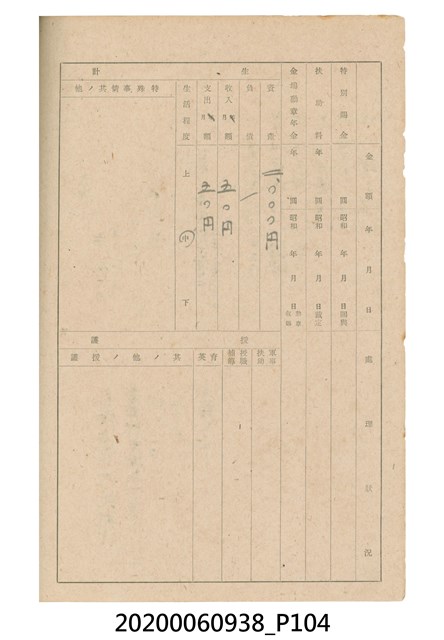 金額 年月日 處理狀況
特別賜金 圓 昭和 年 月 日
扶助料 年 圓 昭和 年 月 日
金鵄勳章年金 年 圓 昭和 年 月 日
生計
資產 二、〇〇〇円
負債 /
收入 月額 五〇円
支出 月額 五〇円
生活程度 上 中 下
特殊事情其ノ他
援護
軍事扶助
育英
其ノ他ノ援護
20200060938_P104